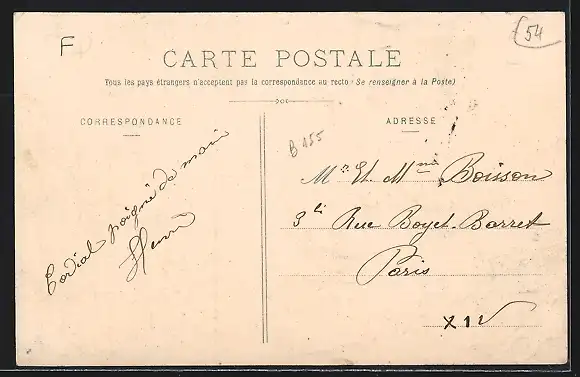 F
54
CARTE POSTALE
Tous les pays étrangers n'acceptent pas la correspondance au recto (Se renseigner à la Poste)
CORRESPONDANCE
ADRESSE
B 155
Cordial poigné de main
Henri
Mr Et Mme Boisson
3 Rue Boyet-Barret
Paris
XIV